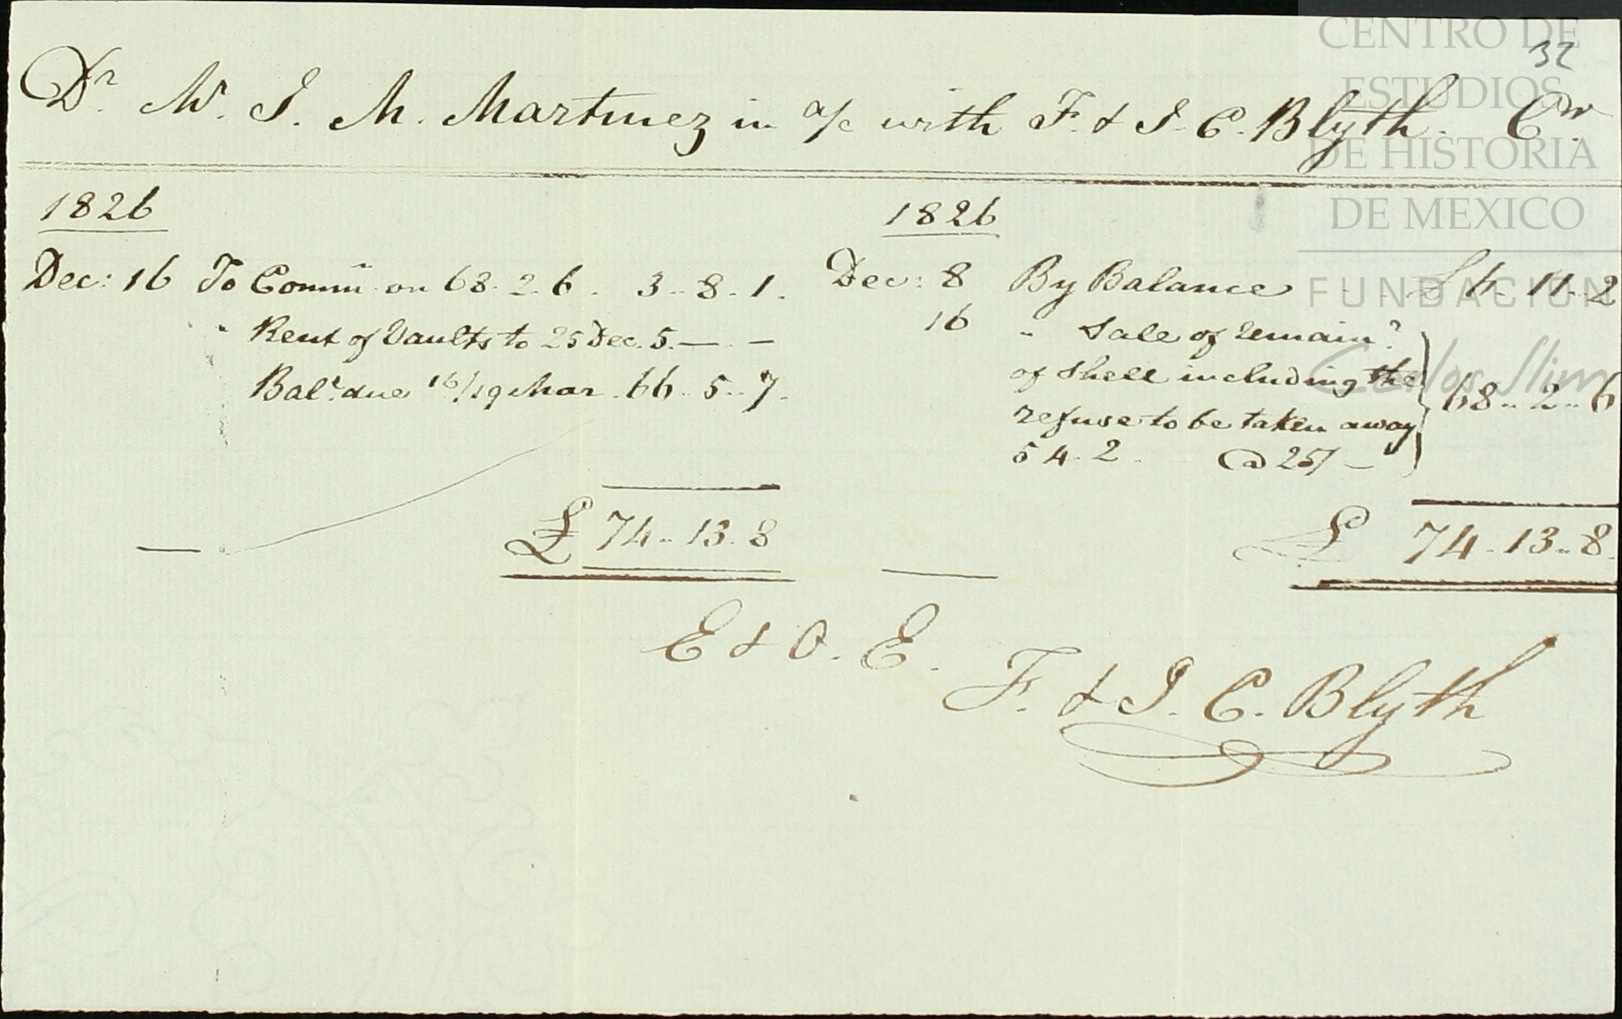 32
Dr. Mr. J. M. Martinez in a/c with F. & J. C. Blyth. Cr.
1826
Dec: 16 To Commn on 68..2..6. 3..8..1.
" Rent of Vaults to 25 Dec. 5.—.—
Bale. due 16/19 Mar. 66..5..7.
£ 74..13..8
1826
Dec: 8 By Balance £6..11..2
16 " Sale of remainr.
of Shell including the
refuse to be taken away
54..2 @ 25/— 68..2..6
£ 74..13..8
E & O. E.
F. & J. C. Blyth
CENTRO DE
ESTUDIOS
DE HISTORIA
DE MEXICO
FUNDACIÓN
Carlos Slim